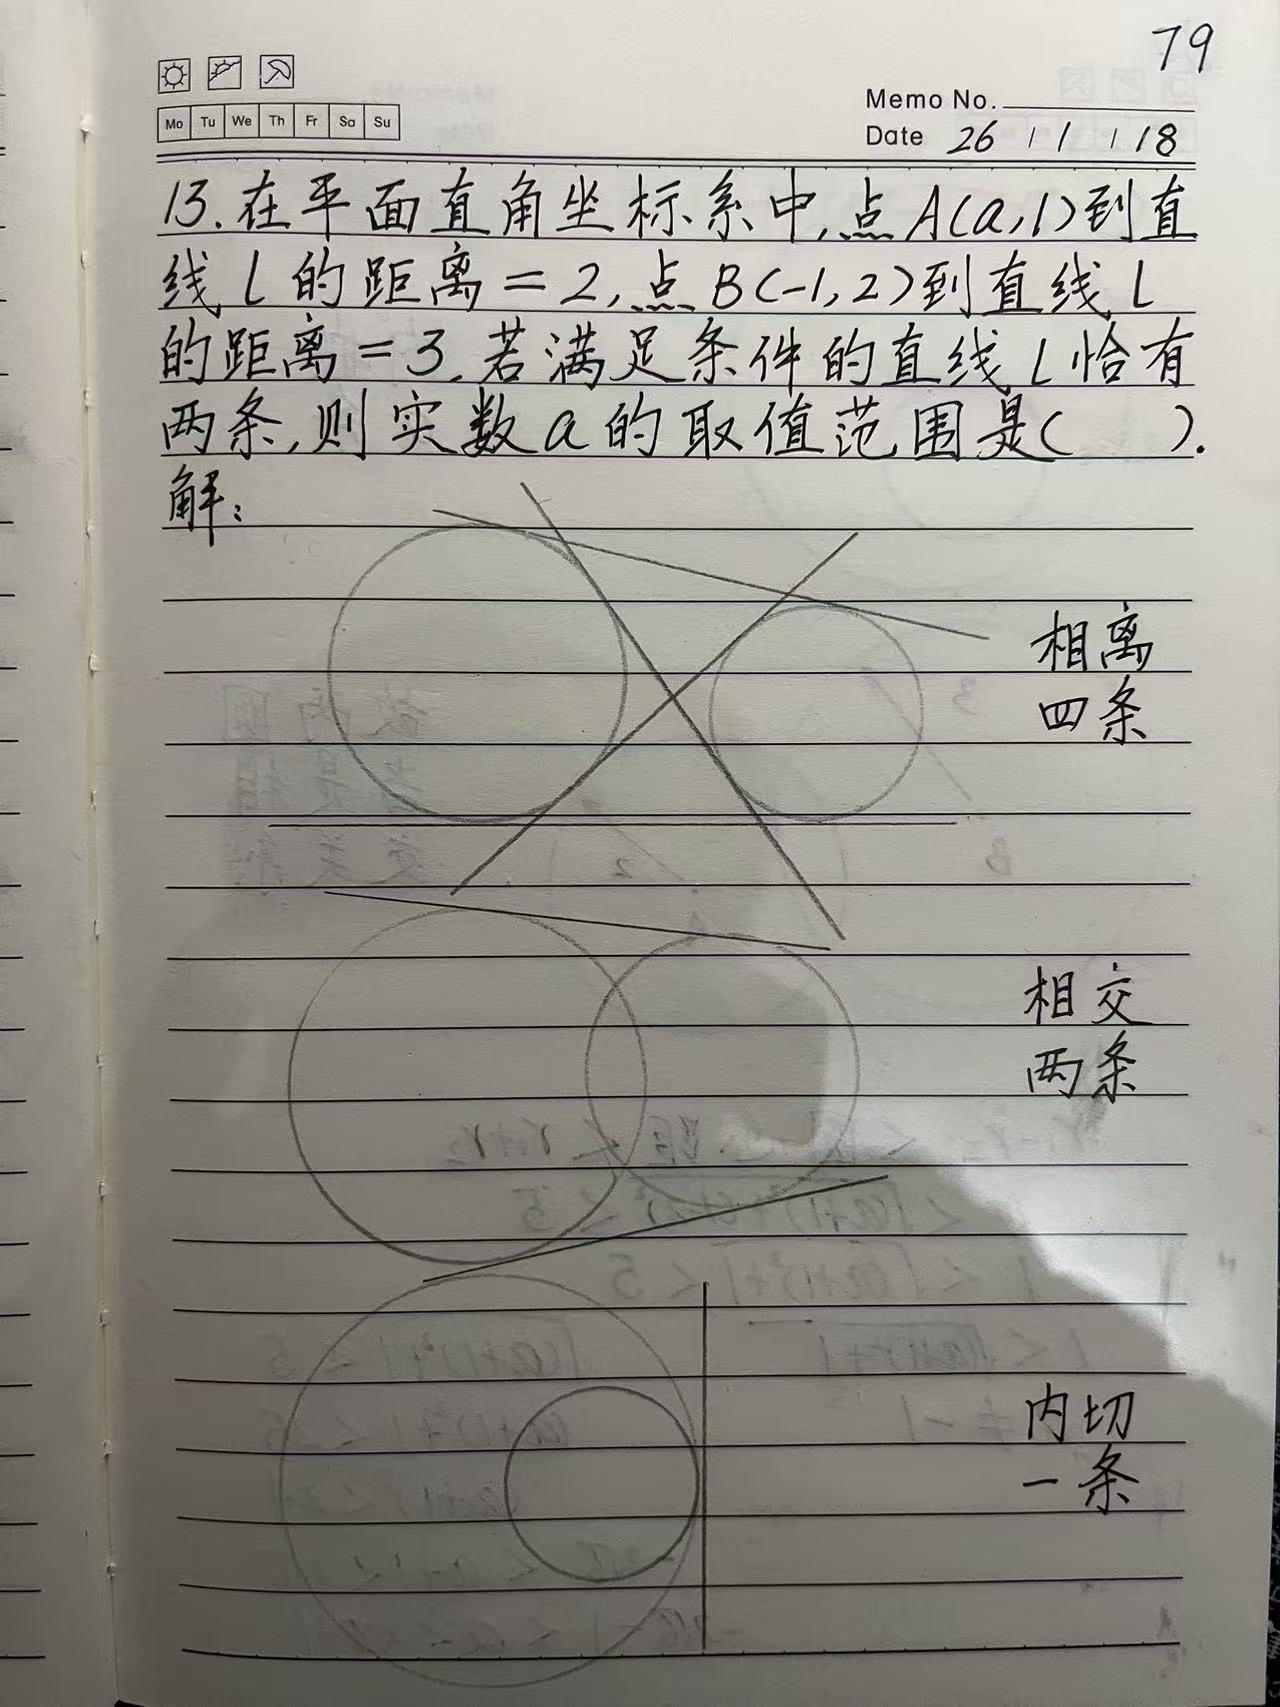 79
Mo Tu We Th Fr Sa Su
Memo No.
Date 26 / 1 / 18
13.在平面直角坐标系中,点A(a,1)到直
线l的距离=2,点B(-1,2)到直线l
的距离=3.若满足条件的直线l恰有
两条,则实数a的取值范围是( ).
解:
相离
四条
相交
两条
内切
一条